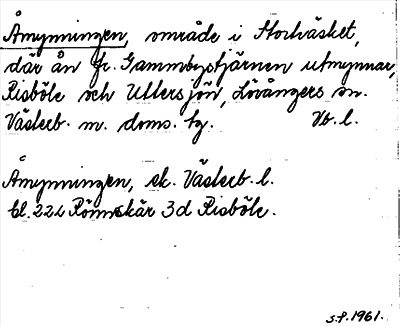 Åmynningen, område i Storträsket,
där ån fr. Gammbystjärnen utmynnar,
Risböle och Uttersjön, Lövångers sn.
Västerb. m. doms. tg. Vb. l.
Åmynningen, ek. Västerb. l.
bl. 22L Rönnskär 3d Risböle.
S.P. 1961.